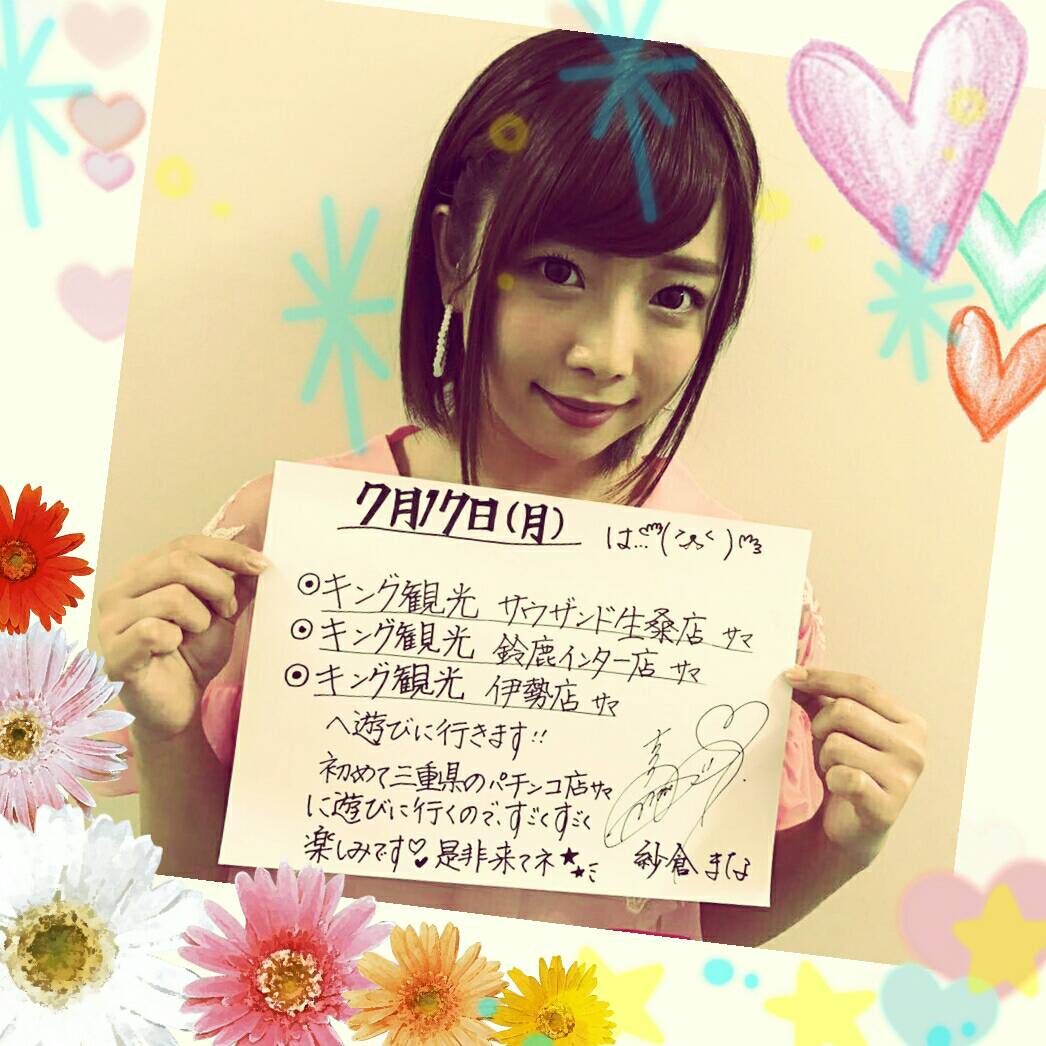 7月17日(月) は…(ぺろく)
◉キング観光 サウザンド生桑店 サマ
◉キング観光 鈴鹿インター店 サマ
◉キング観光 伊勢店 サマ
へ遊びに行きます!!
初めて三重県のパチンコ店サマ
に遊びに行くので、すごくすごく
楽しみです♡♥是非来てネ★
紗倉まな